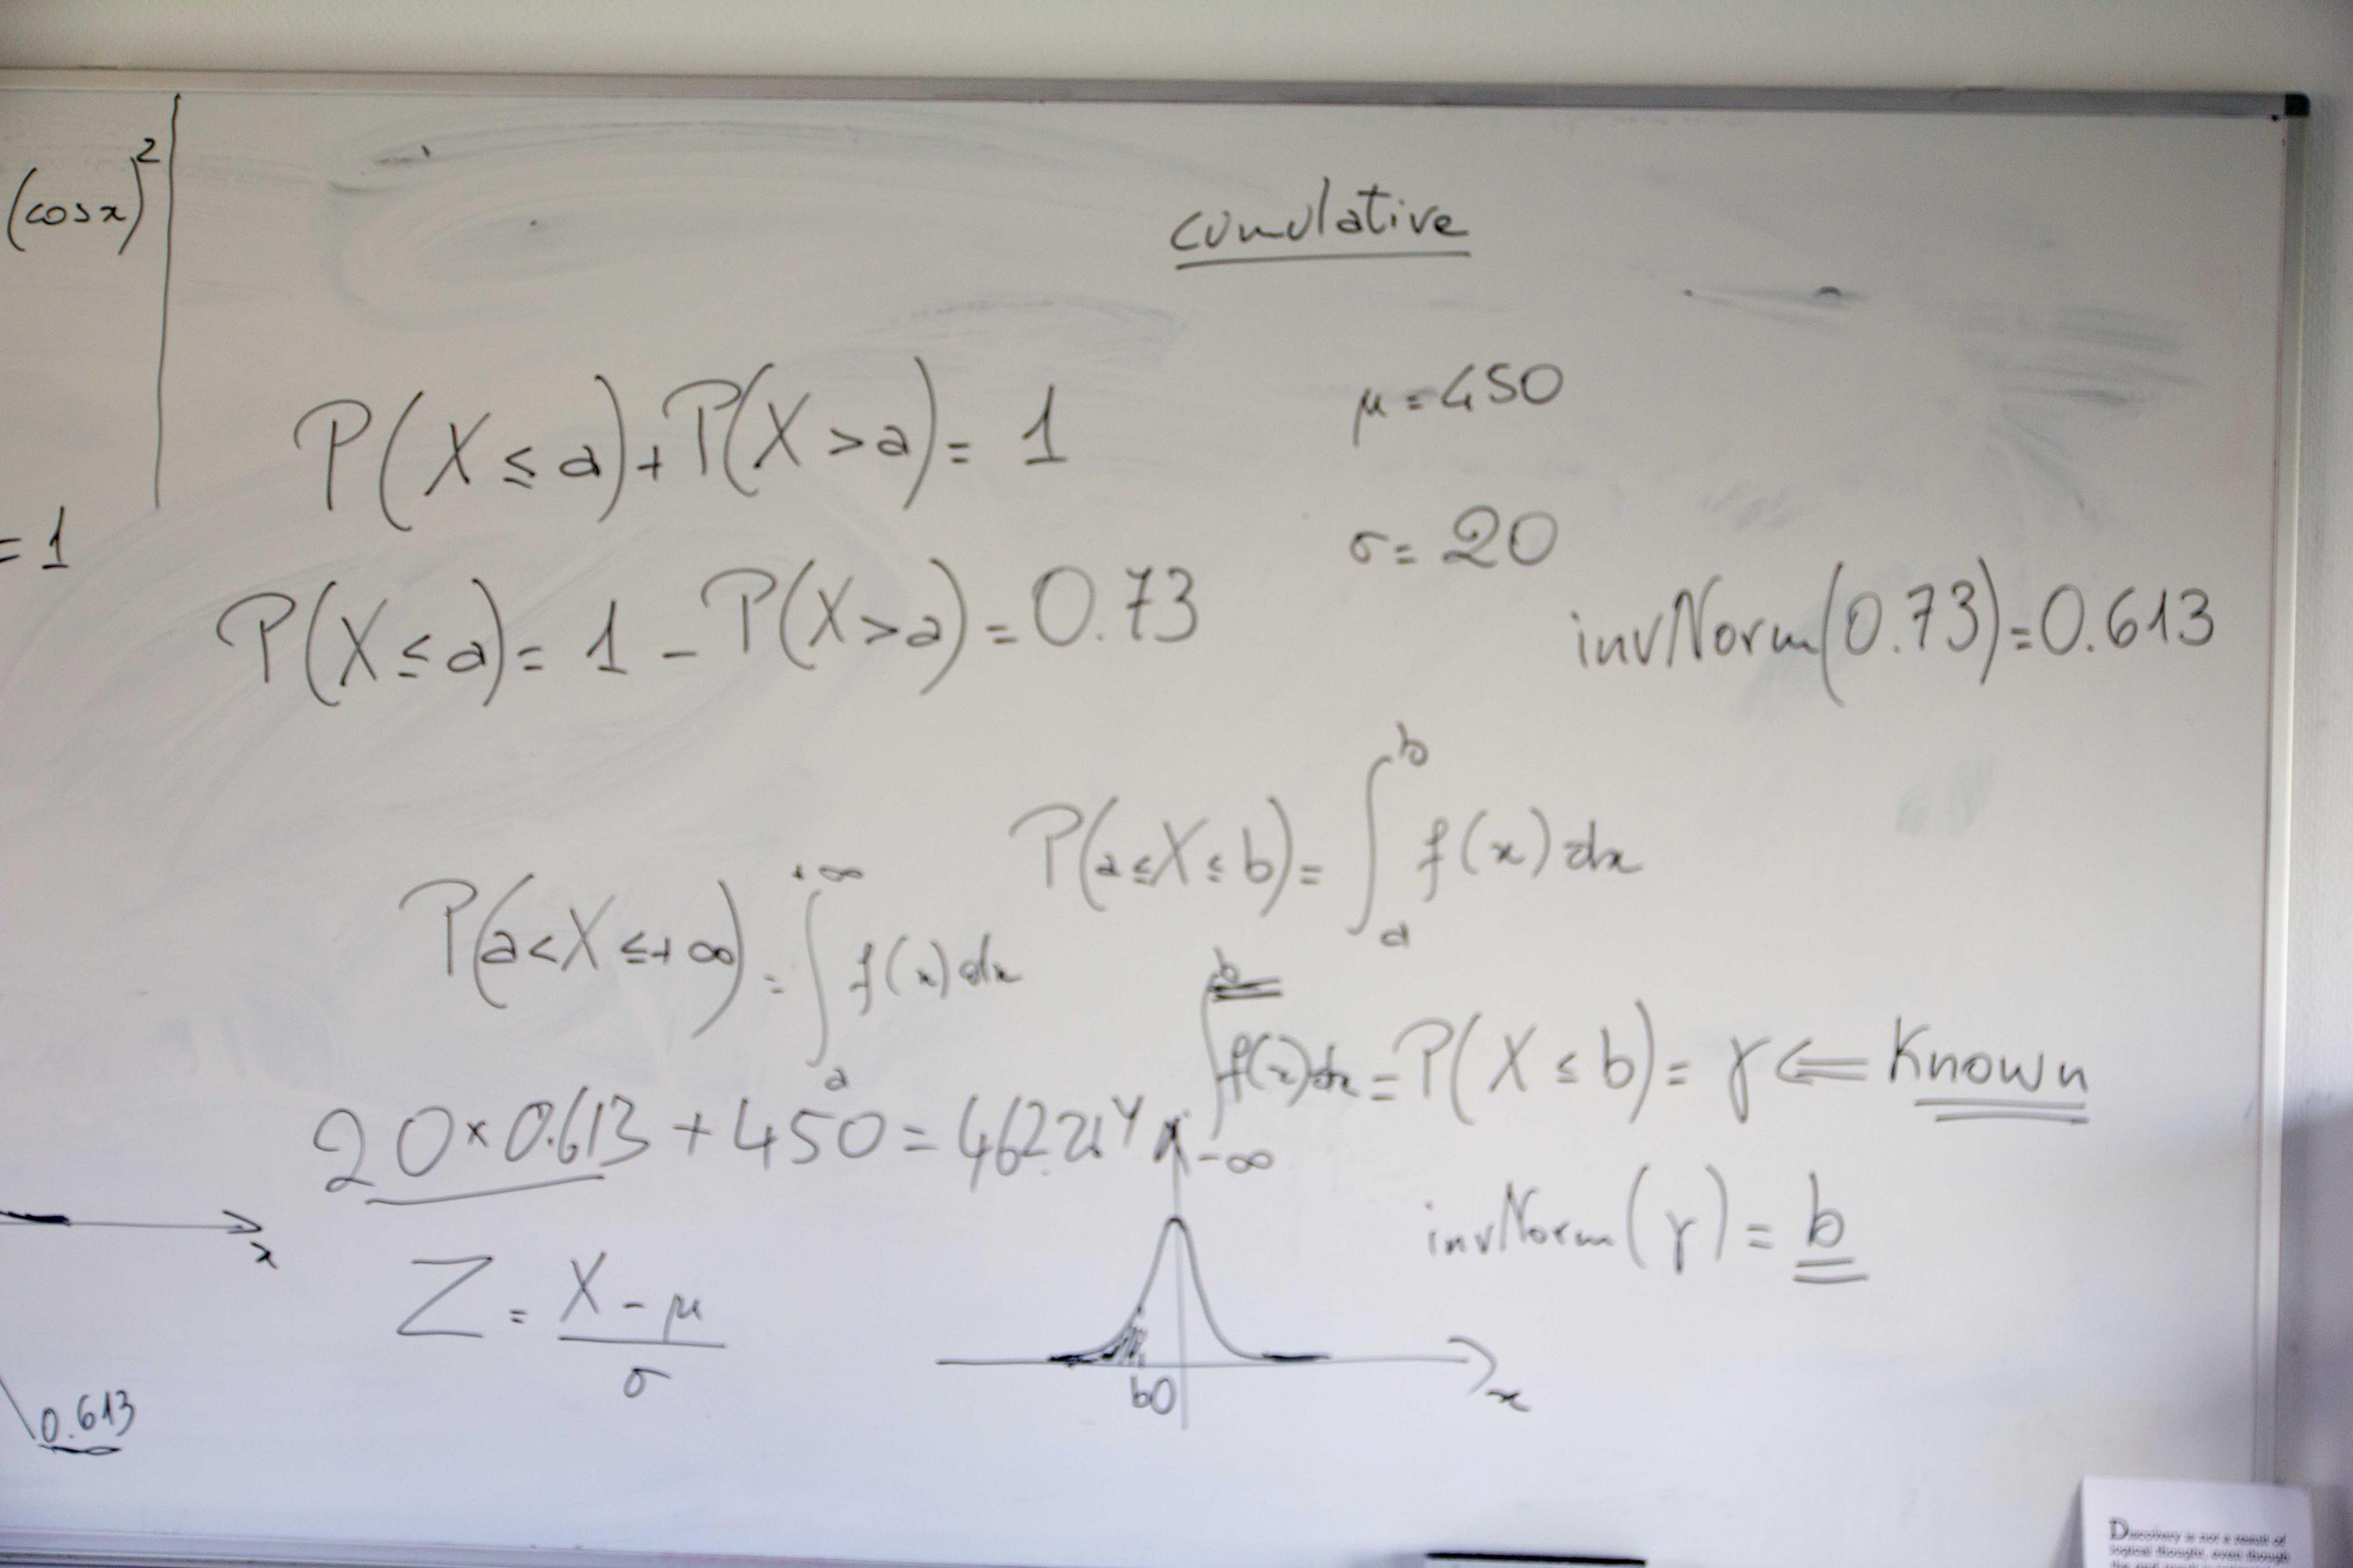 (cosx)²
= 1
cumulative
P(X ≤ a) + P(X > a) = 1
μ = 450
σ = 20
P(X ≤ a) = 1 - P(X > a) = 0.73
invNorm(0.73) = 0.613
P(a ≤ X ≤ b) = ∫_a^b f(x) dx
P(a < X ≤ +∞) = ∫_a^{+∞} f(x) dx
∫_{-∞}^b f(x) dx = P(X ≤ b) = γ ⇐ Known
20 × 0.613 + 450 = 462.2
y
invNorm(γ) = b
x
Z = (X - μ)/σ
b 0
x
0.613
Discovery is not a result of
logical thought, even though